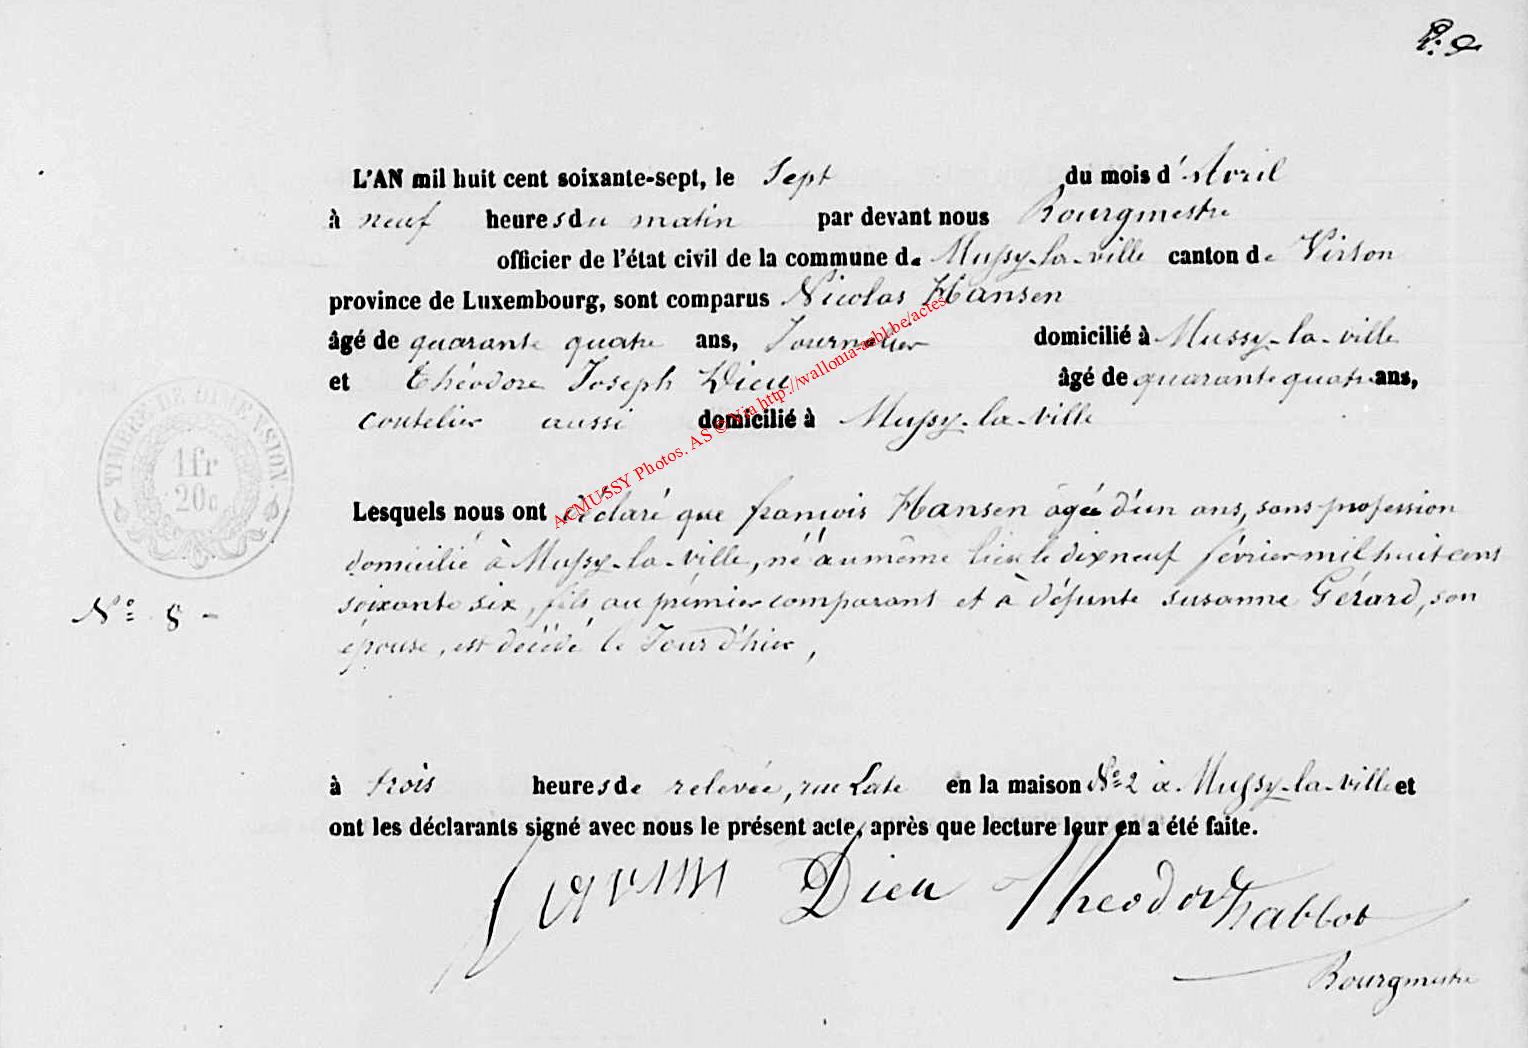 L'AN mil huit cent soixante-sept, le Sept du mois d'Avril
à neuf heures du matin par devant nous Bourgmestre
officier de l'état civil de la commune de Mussy-la-ville canton de Virton
province de Luxembourg, sont comparus Nicolas Hansen
âgé de quarante quatre ans, Journalier domicilié à Mussy-la-ville
et théodore Joseph Dieu âgé de quarante quatre ans,
coutelier aussi domicilié à Mussy-la-ville
ACMUSSY Photos. AS © Via http://wallonia-asbl.be/actes
TIMBRE DE DIMENSION
1fr
20c
Lesquels nous ont déclaré que françois Hansen âgée d'un ans, sans profession
domicilié à Mussy-la-ville, né au même lieu le dix neuf février mil huit cent
soixante six, fils au prémier comparant et à défunte susanne Gérard, son
épouse, est décédé le Jour d'hier,
N° 8 -
à trois heures de relevée, rue Late en la maison N° 2 à Mussy-la-ville et
ont les déclarants signé avec nous le présent acte, après que lecture leur en a été faite.
Dieu Theodor
Bourgmestre